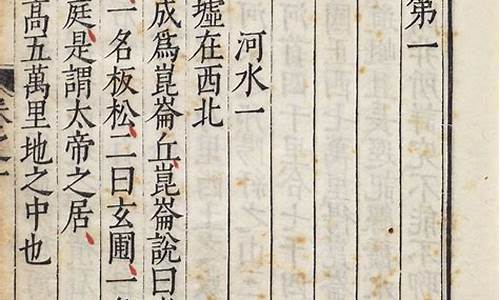 第一
河水一
墟在西北
成爲崑崙丘崑崙說曰
一名板松二曰玄圃一
庭是謂太帝之居
高五萬里地之中也